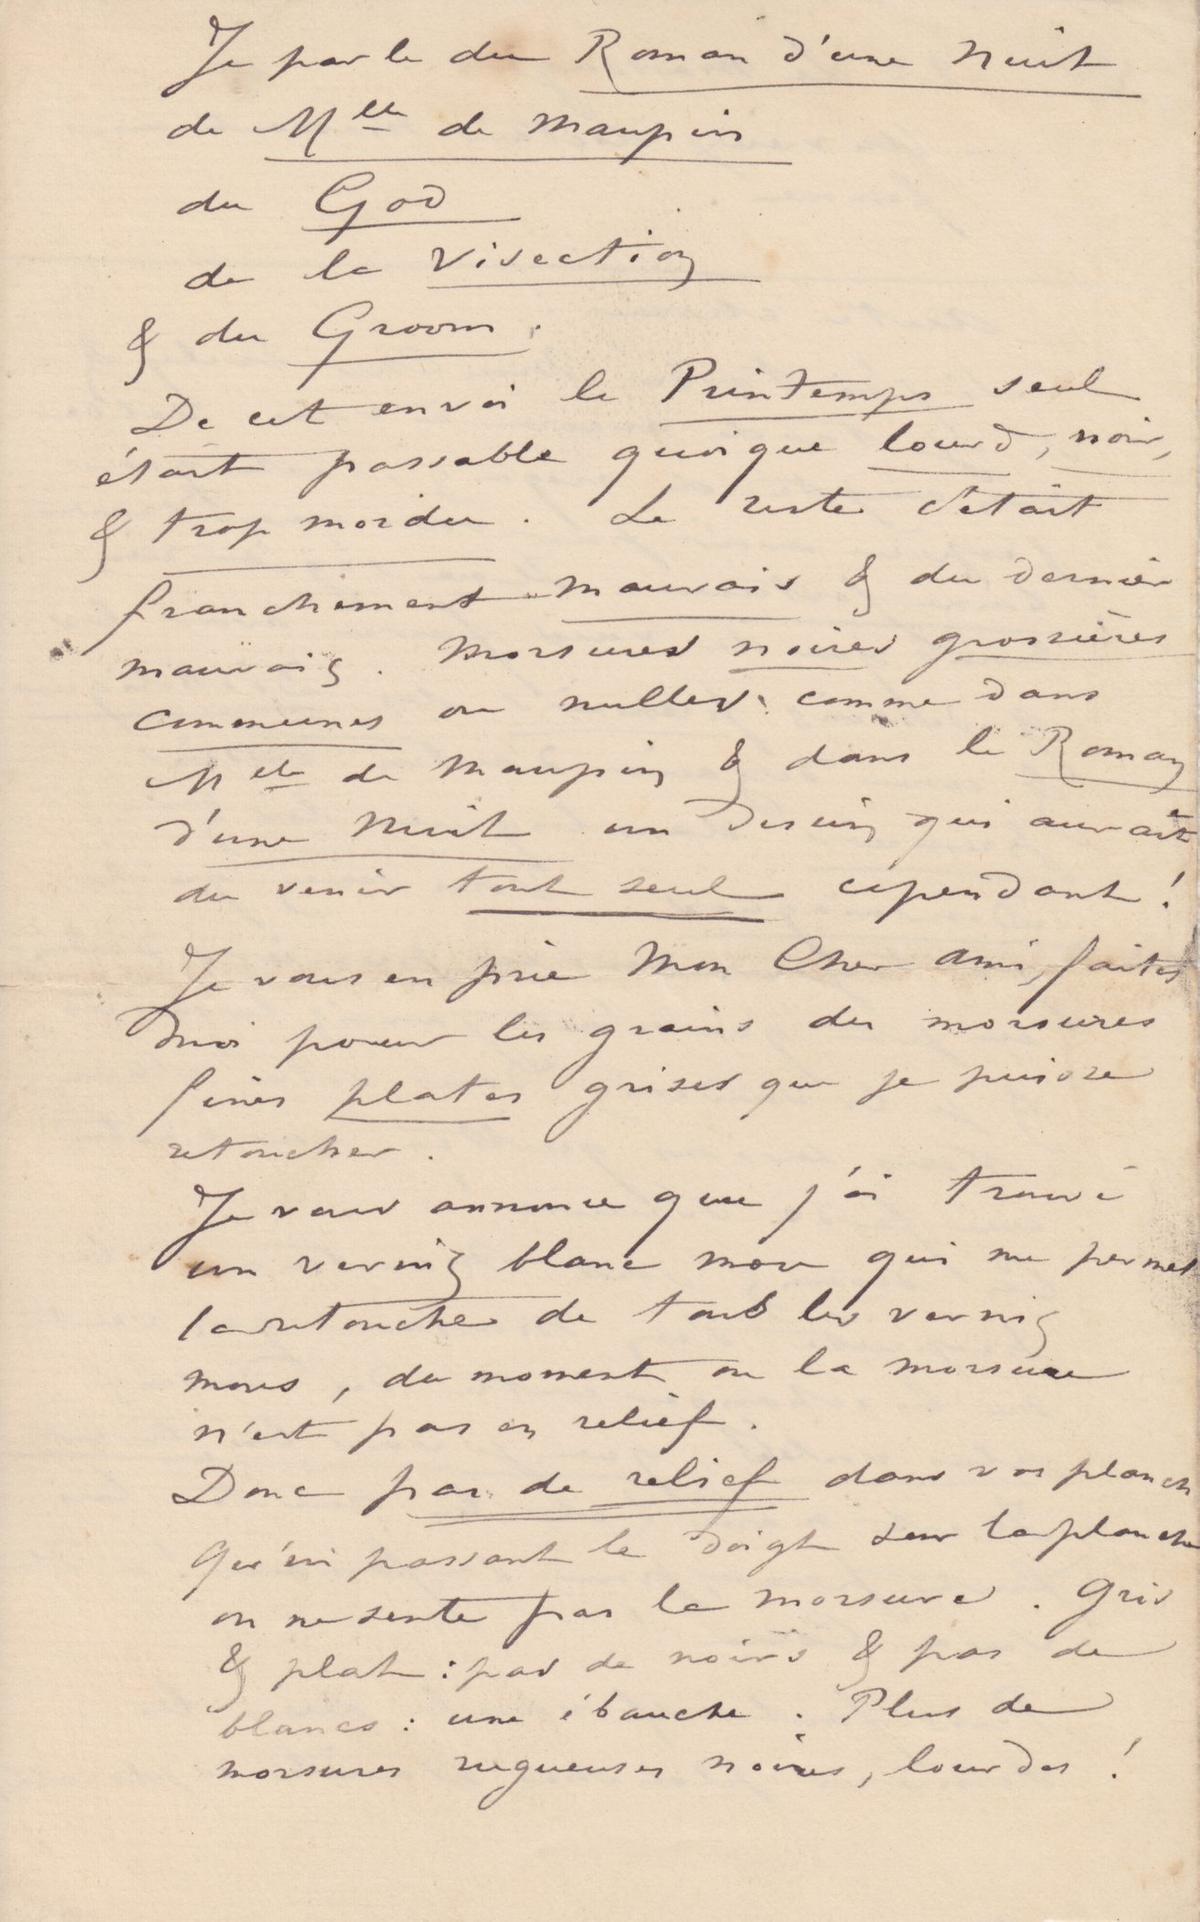 Je parle du Roman d'une Nuit
de Mlle de Maupin
du God
de la Visection
& du Groom.
De cet envoi le Printemps seul
était passable quoique lourd, noir,
& trop mordu. Le reste était
franchement mauvais & du dernier
mauvais. Morsures noires grossières
communes ou nulles comme dans
Mlle de Maupin & dans le Roman
d'une Nuit un dessin qui aurait
du venir tout seul cependant !
Je vous en prie Mon Cher ami, faites
moi pour les grains des morsures
fines plates grises que je puisse
retoucher.
Je vous annonce que j'ai trouvé
un vernis blanc mou qui me permet
la retouche de tous les vernis
mous, du moment ou la morsure
n'est pas en relief.
Donc pas de relief dans vos planches
Qu'en passant le doigt sur la planche
on ne sente pas la morsure. Gris
& plat : pas de noirs & pas de
blancs : une ébauche. Plus de
morsures rugueuses noires, lourdes !